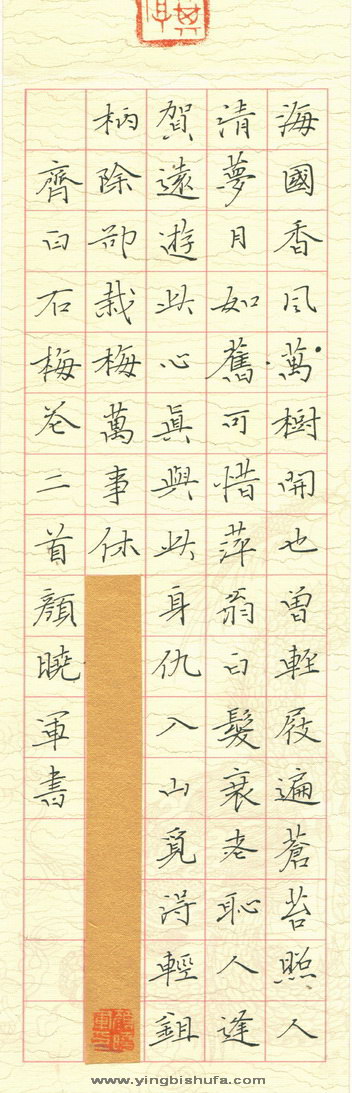 海國香風萬樹開也曾輕屐遍蒼苔照人
清夢月如舊可惜萍翁白髮衰老恥人逢
賀遠遊此心真與此身仇入山覓得輕鉏
柄除卻栽梅萬事休
齊白石梅花二首顏曉軍書
www.yingbishufa.com